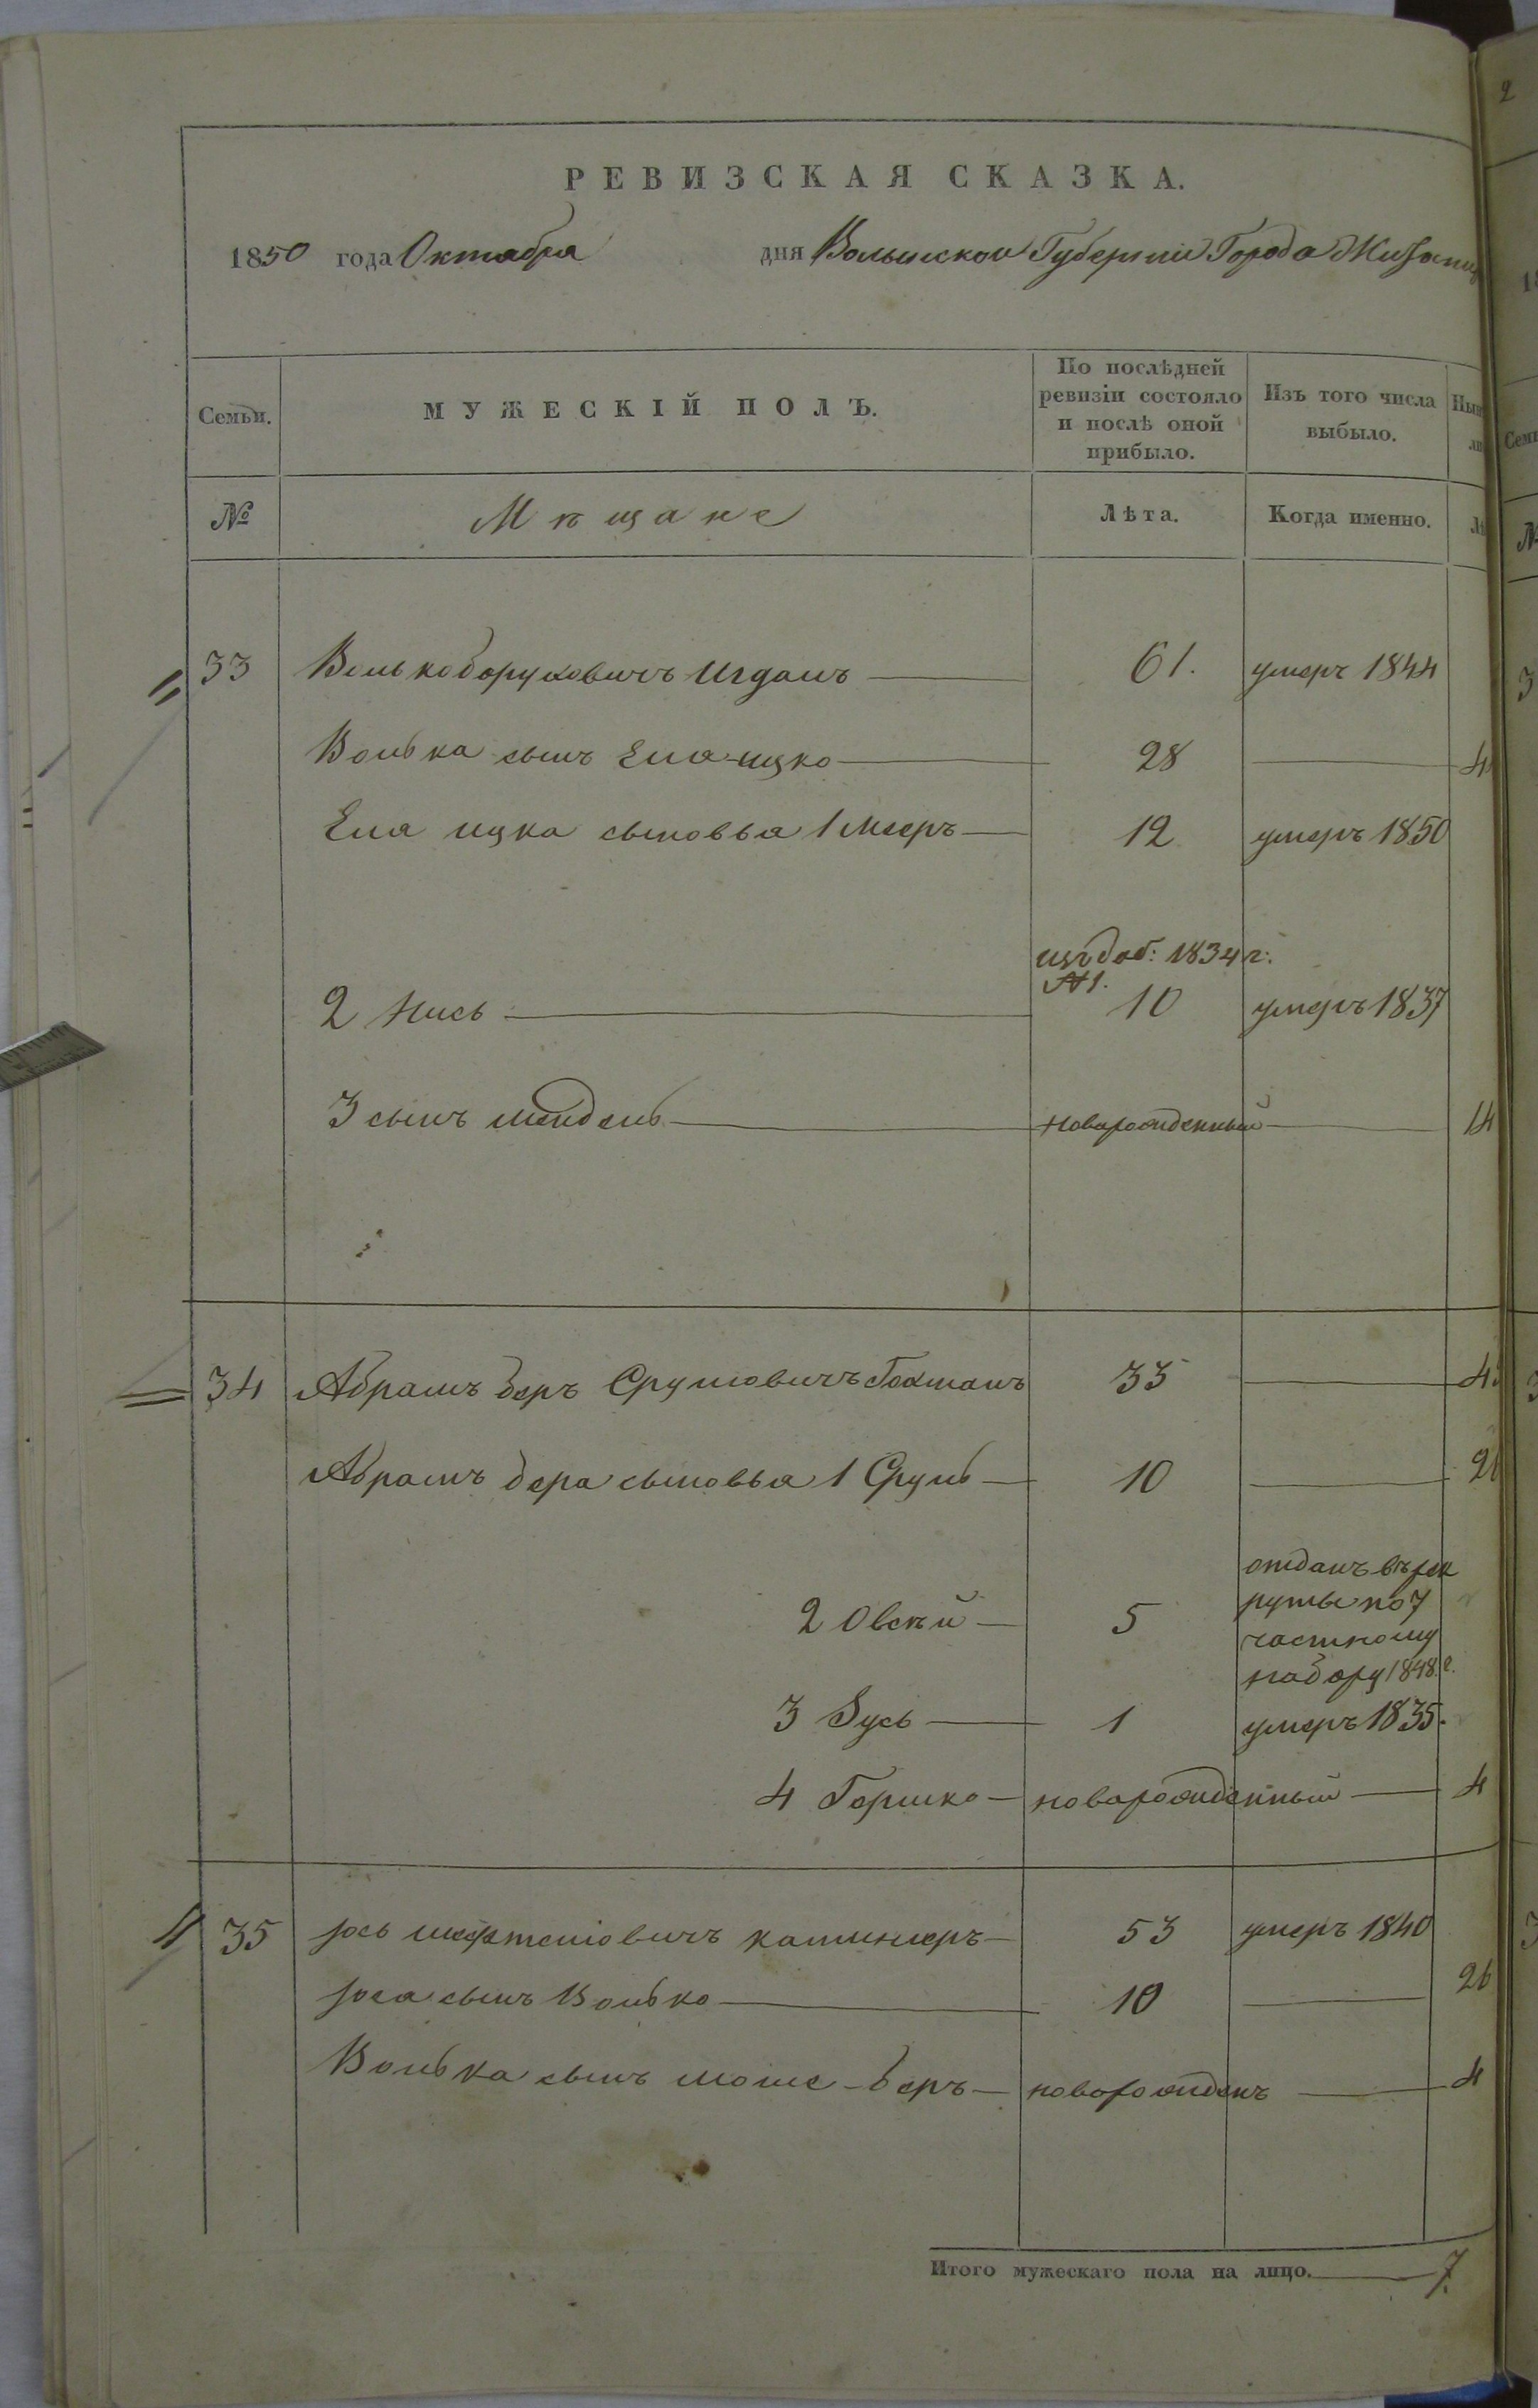 РЕВИЗСКАЯ СКАЗКА.
1850 года Октября дня Волынской Губерніи Города
Семьи. МУЖЕСКІЙ ПОЛЪ. По послѣдней ревизіи состояло и послѣ оной прибыло. Изъ того числа выбыло.
№ Мѣщане Лѣта. Когда именно.
33 Волько боруховичъ 61. умеръ 1844
Волька сынъ Ела ицко 28
Ела ицка сыновья 1 Мееръ 12 умеръ 1850
изъ доб: 1834 г:
№ 1.
2 Нись 10 умеръ 1837
3 сынъ Мендель новарожденный 14
34 Абрамъ беръ Срулювичъ Гохманъ 33
Абрамъ бера сыновья 1 Сруль 10
отданъ въ рек
2 Овсѣй 5 руты по 7
частному
набору 1848. г.
3 Зусь 1 умеръ 1835.
4 Гершко новарожденный 4
35 Іось 53 умеръ 1840
Іося сынъ Волько 10 26
Волька сынъ Моше-беръ новорожденъ 4
Итого мужескаго пола на лицо. 7